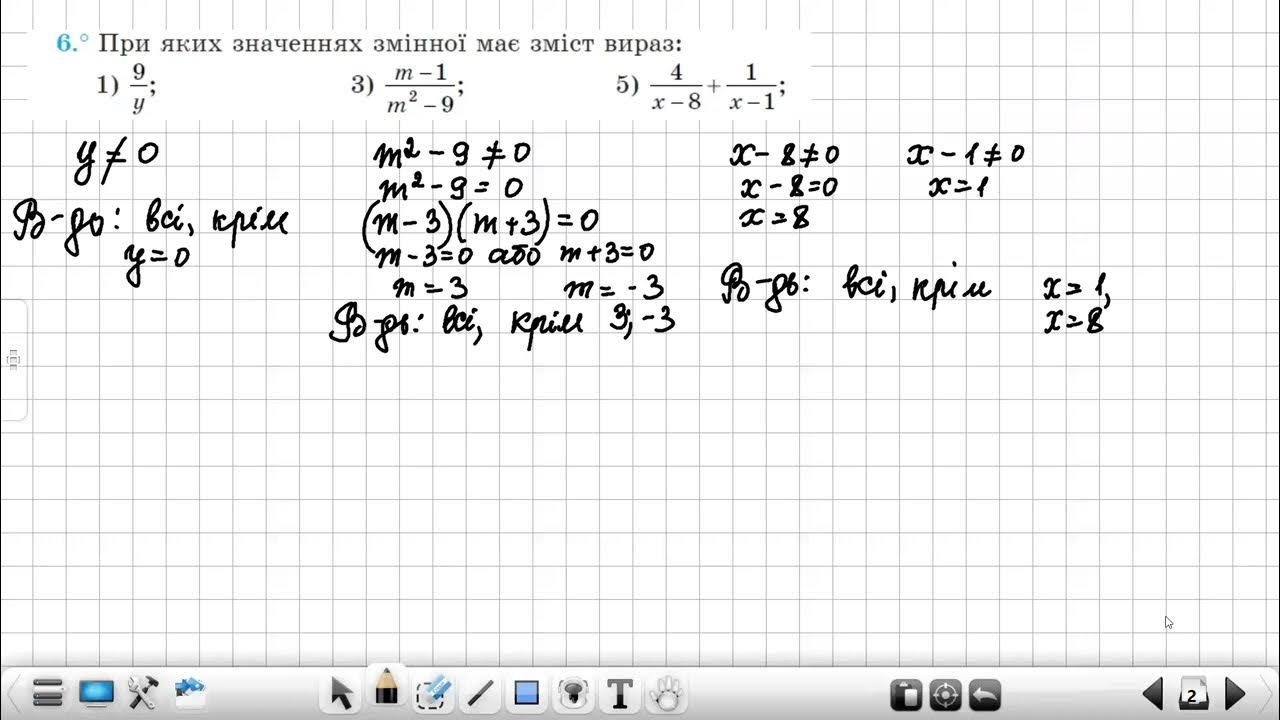 6.° При яких значеннях змінної має зміст вираз:
1) 9/y; 3) (m − 1)/(m² − 9); 5) 4/(x − 8) + 1/(x − 1);
y ≠ 0
В-дь: всі, крім
y = 0
m² − 9 ≠ 0
m² − 9 = 0
(m − 3)(m + 3) = 0
m − 3 = 0 або m + 3 = 0
m = 3 m = −3
В-дь: всі, крім 3; −3
x − 8 ≠ 0 x − 1 ≠ 0
x − 8 = 0 x = 1
x = 8
В-дь: всі, крім x = 1,
x = 8
T
2